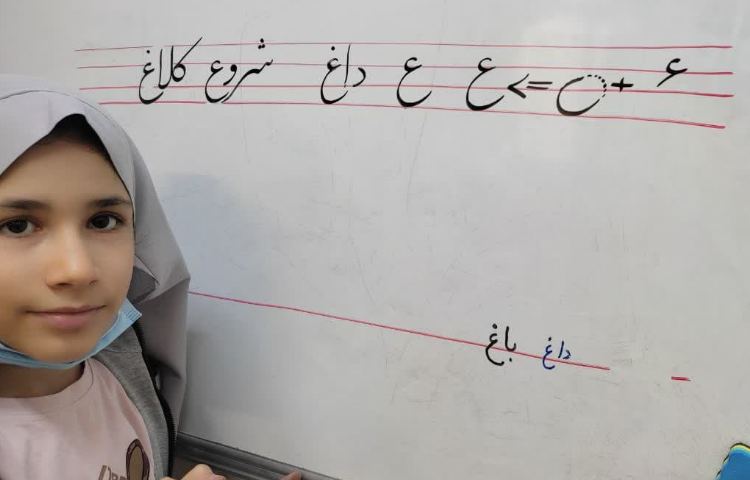 ﻋ + ں => ع ع داغ شروع کلاغ
باغ داغ